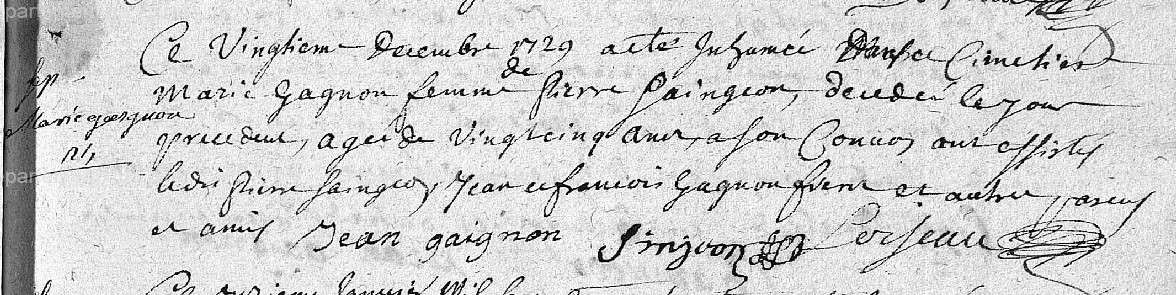 Ce Vingtieme Decembre 1729 a eté Inhumée Dans ce Cimetiere
Sep
Marie Gagnon femme de Pierre Saingeon, decedée le jour
Marie gaignon
precedent, agée de Vingtcinq ans, a son Convoy ont assistes
ledit Pierre Saingeon, Jean et francois Gagnon freres et autres parens
et amis Jean gaignon Sinjeon Loiseau